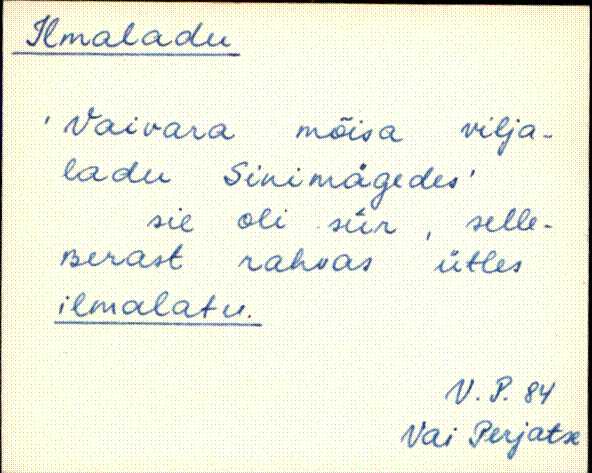 Ilmaladu
'Vaivara mõisa vilja-
ladu Sinimägedes'
sie oli sũr, selle-
perast rahvas ütles
ilmalatu.
V. P. 84
Vai Perjatse